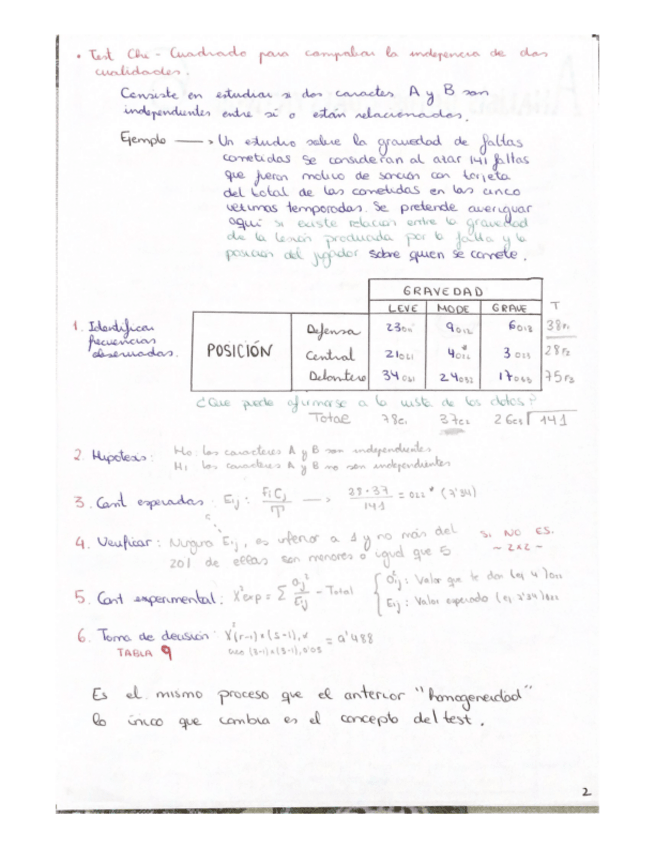 • Test Chi - Cuadrado para comprobar la indepencia de dos
cualidades.
Consiste en estudiar si dos caracteres A y B son
independientes entre si o están relacionados.
Ejemplo → Un estudio sobre la gravedad de faltas
cometidas se consideran al azar 141 faltas
que fueron motivo de sanción con tarjeta
del total de las cometidas en las cinco
últimas temporadas. Se pretende averiguar
aquí si existe relación entre la gravedad
de la lesión producida por la falta y la
posición del jugador sobre quien se comete.
GRAVEDAD
LEVE MODE GRAVE T
1. Identificar frecuencias observadas.
POSICIÓN
Defensa 23 O11 9 O12 6 O13 38 F1
Central 21 O21 4 O22 3 O23 28 F2
Delantero 34 O31 24 O32 17 O33 75 F3
¿Que puede afirmarse a la vista de los datos?
Total 78 C1 37 C2 26 C3 141
2. Hipotesis: H0: los caracteres A y B son independientes
H1: los caracteres A y B no son independientes
3. Cant esperadas: Eij: Fi Cj / T → 28·37 / 141 = O22* (7'34)
4. Verificar: Ninguna Eij, es inferior a 1 y no más del
20% de ellas son menores o igual que 5
SI NO ES.
~ 2x2 ~
5. Cant experimental: X²exp = Σ Oij² / Eij - Total
Oij: Valor que te dan (ej 4) O22
Eij: Valor esperado (ej 7'34) O22
6. Toma de decisión: X²(r-1)·(s-1), α = 9'488
TABLA 9
Es el mismo proceso que el anterior "homogeneidad"
lo único que cambia es el concepto del test.
2